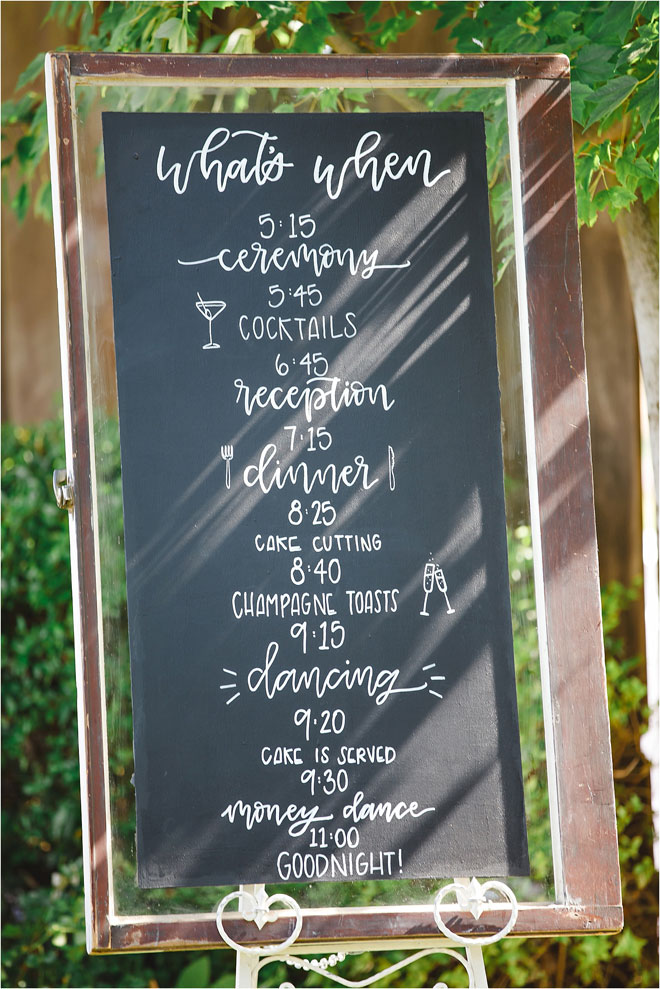 what's when
5:15
ceremony
5:45
COCKTAILS
6:45
reception
7:15
dinner
8:25
CAKE CUTTING
8:40
CHAMPAGNE TOASTS
9:15
dancing
9:20
CAKE IS SERVED
9:30
money dance
11:00
GOODNIGHT!